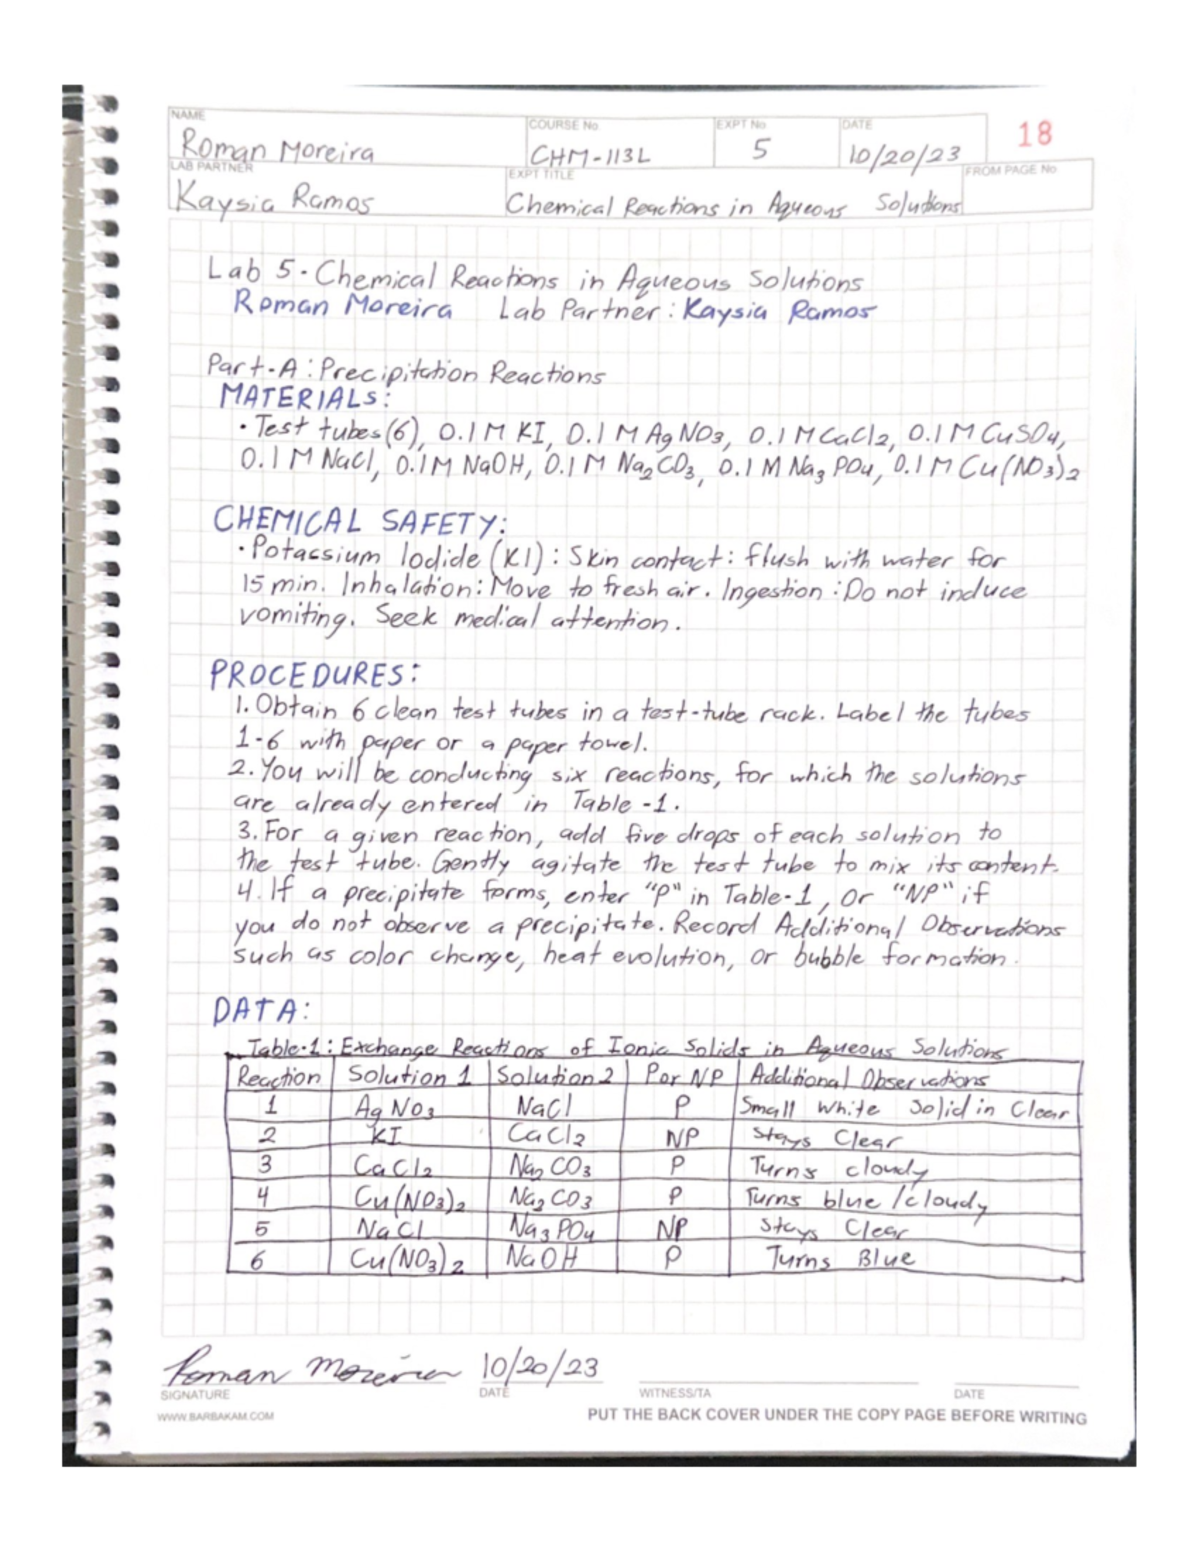 NAME
Roman Moreira
COURSE No
CHM-113L
EXPT No
5
DATE
10/20/23
18
LAB PARTNER
Kaysia Ramos
EXPT TITLE
Chemical Reactions in Aqueous Solutions
FROM PAGE No
Lab 5 - Chemical Reactions in Aqueous Solutions
Roman Moreira Lab Partner: Kaysia Ramos
Part-A: Precipitation Reactions
MATERIALS:
• Test tubes(6), 0.1 M KI, 0.1 M AgNO3, 0.1 M CaCl2, 0.1 M CuSO4,
0.1 M NaCl, 0.1M NaOH, 0.1 M Na2CO3, 0.1 M Na3PO4, 0.1 M Cu(NO3)2
CHEMICAL SAFETY:
• Potassium Iodide (KI): Skin contact: flush with water for
15 min. Inhalation: Move to fresh air. Ingestion: Do not induce
vomiting. Seek medical attention.
PROCEDURES:
1. Obtain 6 clean test tubes in a test-tube rack. Label the tubes
1-6 with paper or a paper towel.
2. You will be conducting six reactions, for which the solutions
are already entered in Table-1.
3. For a given reaction, add five drops of each solution to
the test tube. Gently agitate the test tube to mix its content.
4. If a precipitate forms, enter "P" in Table-1, or "NP" if
you do not observe a precipitate. Record Additional Observations
such as color change, heat evolution, or bubble formation.
DATA:
Table-1: Exchange Reactions of Ionic Solids in Aqueous Solutions
Reaction Solution 1 Solution 2 P or NP Additional Observations
1 AgNO3 NaCl P Small White Solid in Clear
2 KI CaCl2 NP Stays Clear
3 CaCl2 Na2CO3 P Turns cloudy
4 Cu(NO3)2 Na2CO3 P Turns blue/cloudy
5 NaCl Na3PO4 NP Stays Clear
6 Cu(NO3)2 NaOH P Turns Blue
Roman Moreira 10/20/23
SIGNATURE DATE WITNESS/TA DATE
WWW.BARBAKAM.COM PUT THE BACK COVER UNDER THE COPY PAGE BEFORE WRITING